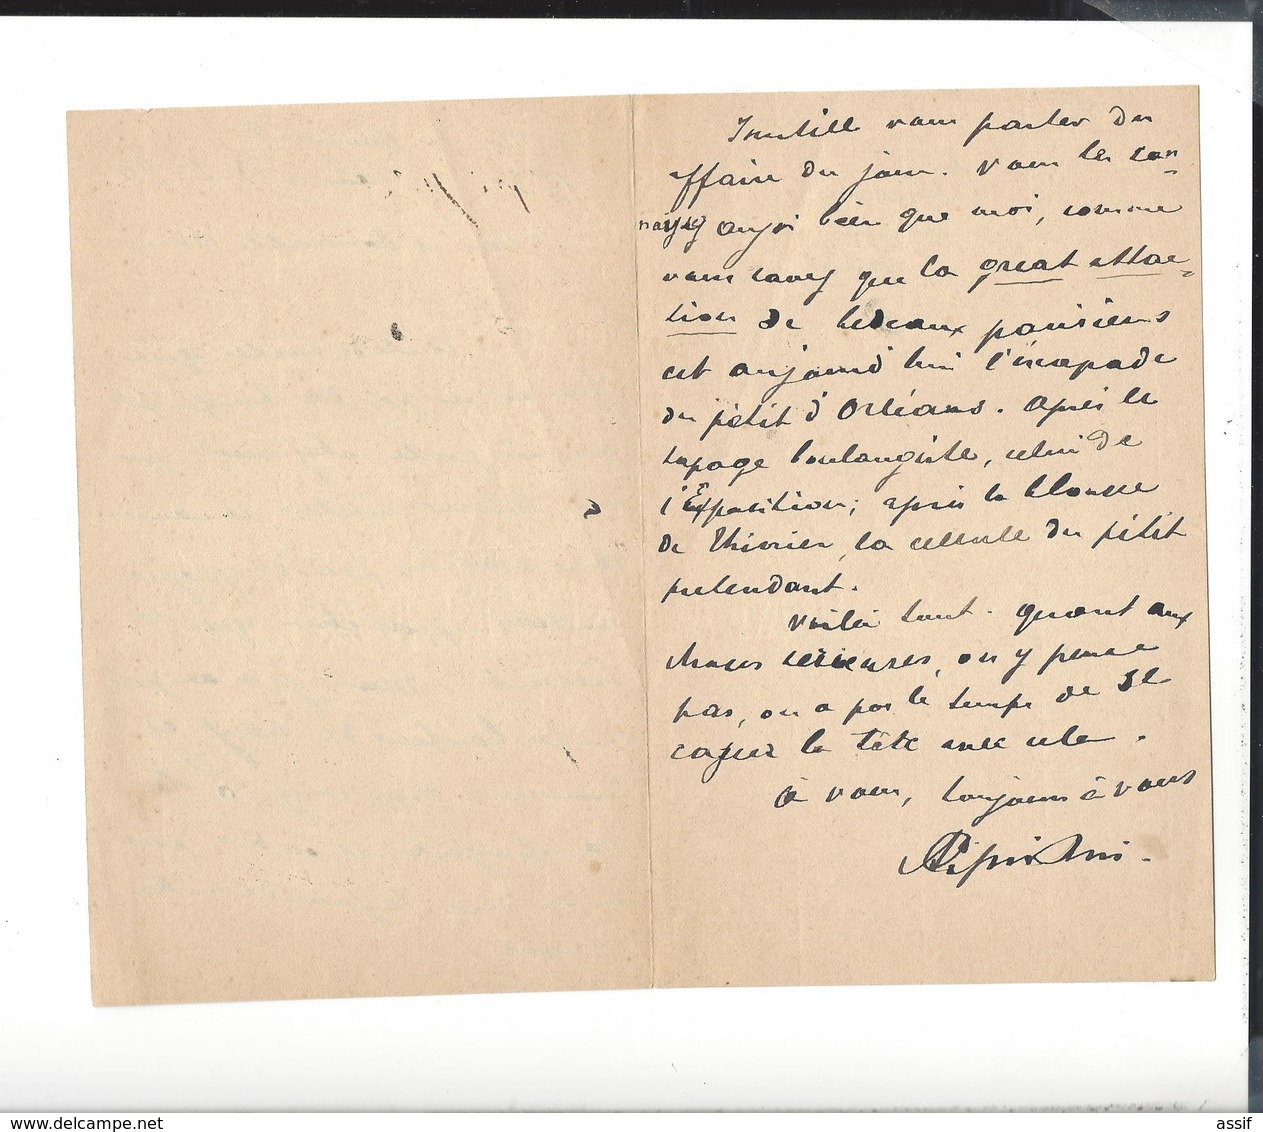 Inutile vous parler des
affaire du jour. Vous les con-
nayez aussi bien que moi, comme
vous savez que la great attrac-
tion de bedeaux parisiens
est aujourd'hui l'incapade
du petit d'Orléans. Après le
tapage boulangiste, celui de
l'Exposition; après la blouse
de Thivrier, la cellule du petit
pretendant.
Voilà tout. Quant aux
choses serieuses, on y pense
pas, on a pas le temps de se
casser la tête avec cela.
à vous, toujours à vous
assif
delcampe.net